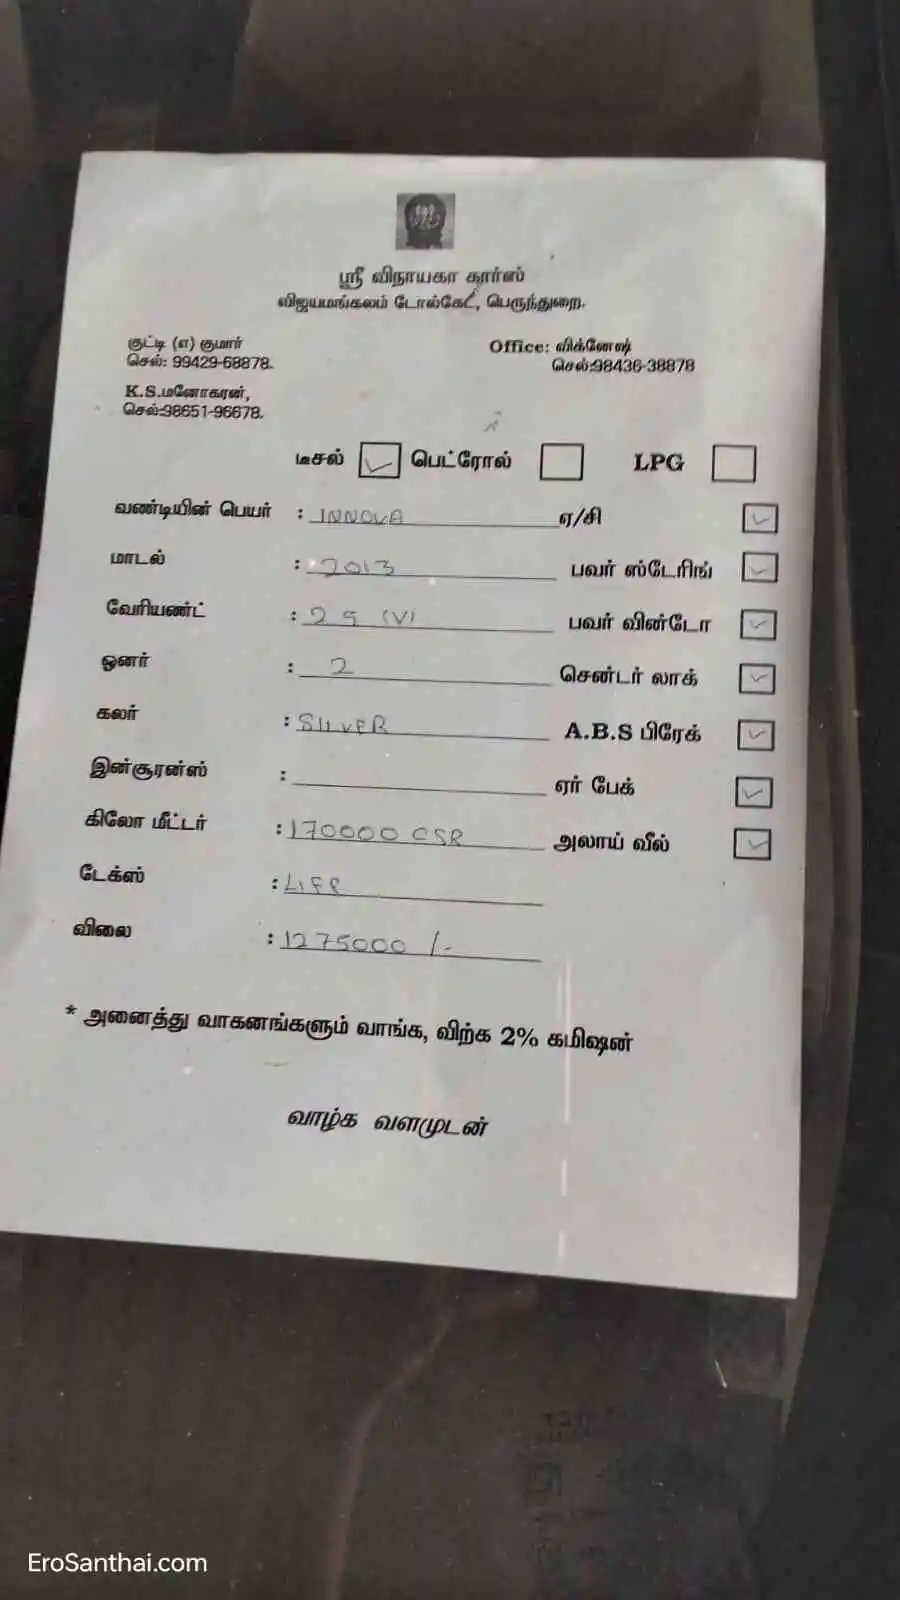 ஸ்ரீ விநாயகா கார்ஸ்
விஜயமங்கலம் டோல்கேட், பெருந்துறை.
குட்டி (எ) குமார் Office: விக்னேஷ்
செல்: 99429-68878. செல்:98436-38878
K.S.மனோகரன்,
செல்:98651-96678.
டீசல் பெட்ரோல் LPG
வண்டியின் பெயர் : INNOVA ஏ/சி
மாடல் : 2013 பவர் ஸ்டேரிங்
வேரியண்ட் : 2.5 (V) பவர் விண்டோ
ஓனர் : 2 சென்டர் லாக்
கலர் : SILVER A.B.S பிரேக்
இன்சூரன்ஸ் : ஏர் பேக்
கிலோ மீட்டர் : 170000 CSR அலாய் வீல்
டேக்ஸ் :
விலை : 1275000 /-
* அனைத்து வாகனங்களும் வாங்க, விற்க 2% கமிஷன்
வாழ்க வளமுடன்
EroSanthai.com